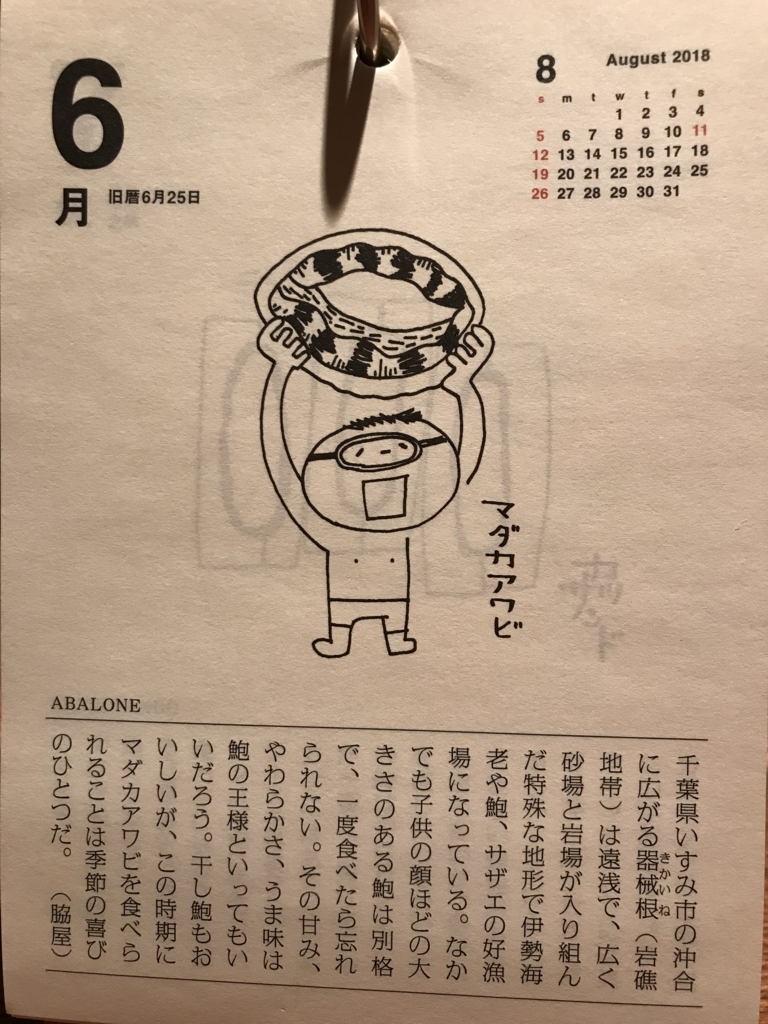 6
月
旧暦6月25日
8 August 2018
s m t w t f s
1 2 3 4
5 6 7 8 9 10 11
12 13 14 15 16 17 18
19 20 21 22 23 24 25
26 27 28 29 30 31
マダカアワビ
ABALONE
千葉県いすみ市の沖合
に広がる器械根（岩礁
きかいね
地帯）は遠浅で、広く
砂場と岩場が入り組ん
だ特殊な地形で伊勢海
老や鮑、サザエの好漁
場になっている。なか
でも子供の顔ほどの大
きさのある鮑は別格
で、一度食べたら忘れ
られない。その甘み、
やわらかさ、うま味は
鮑の王様といってもい
いだろう。干し鮑もお
いしいが、この時期に
マダカアワビを食べら
れることは季節の喜び
のひとつだ。（脇屋）